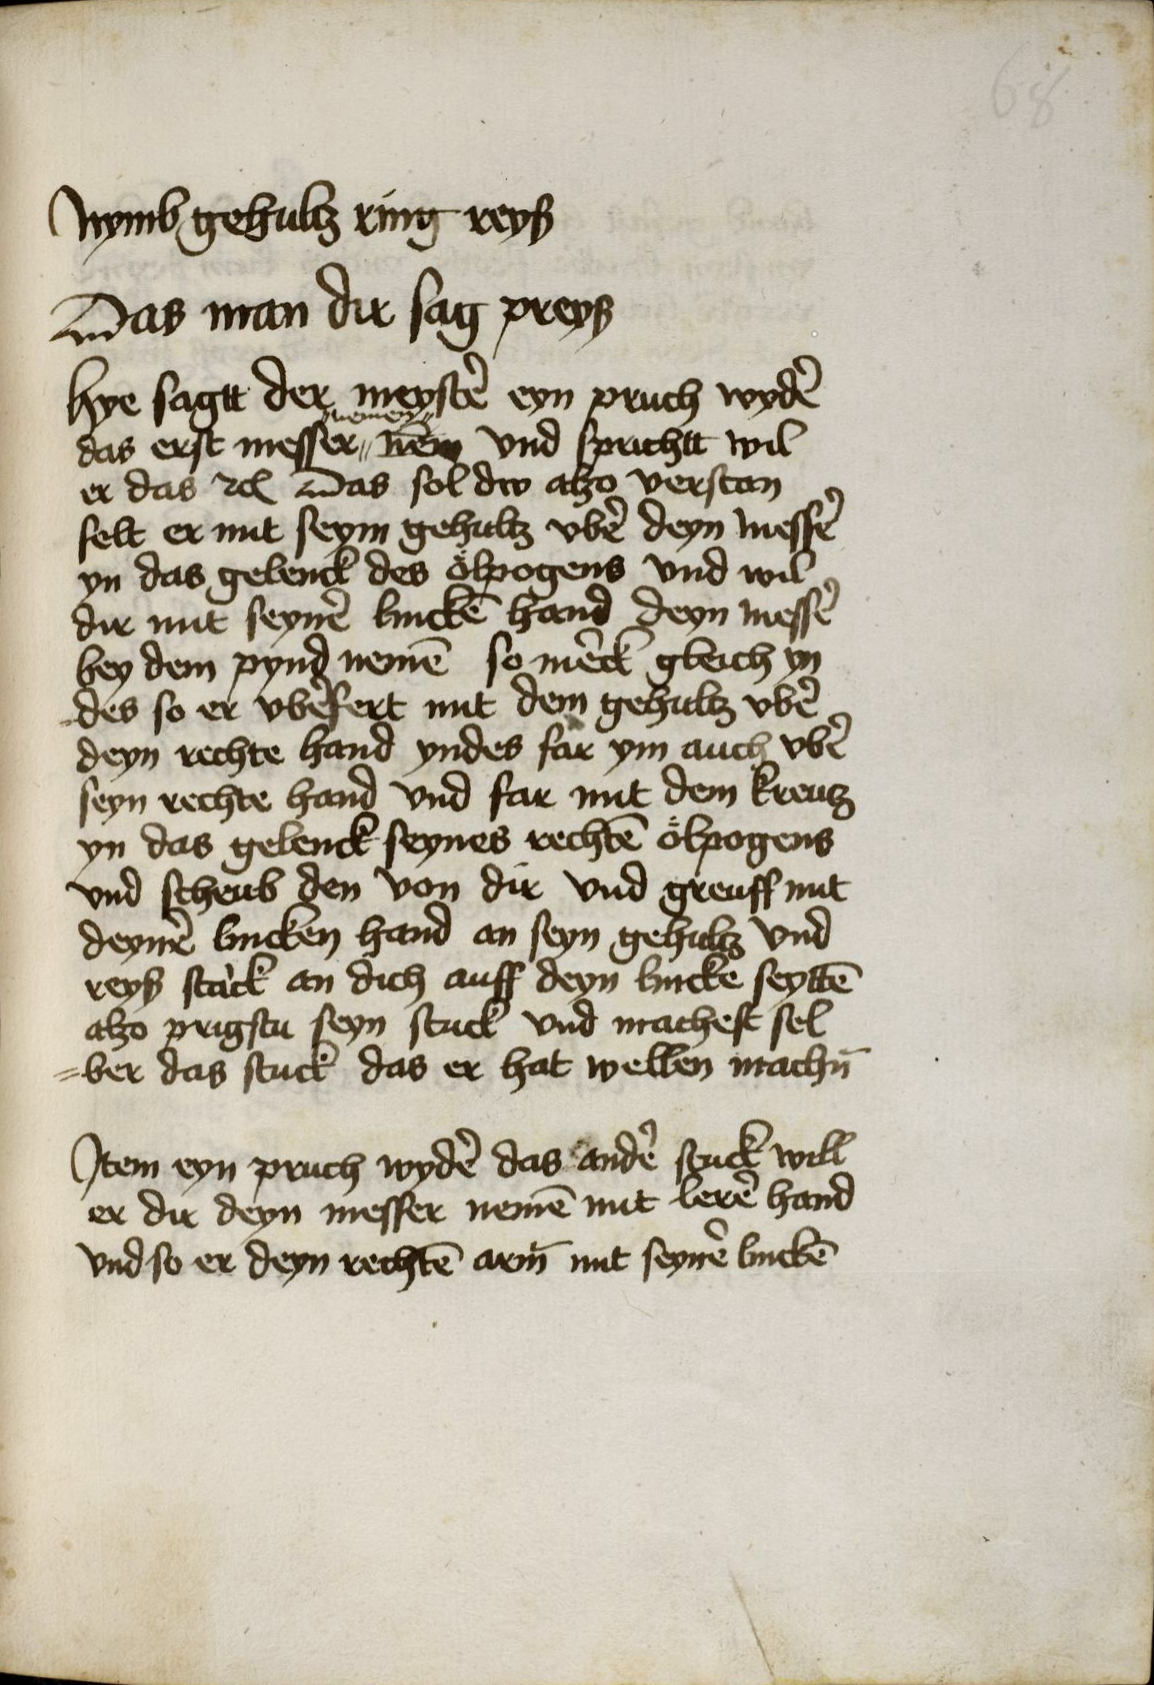 68
Nymb gehultz ring reyß
Das man dir sag preyß
Hye sagtt der meystẽ eyn pruch wydẽ
nemen
das erst messer nem vnd sprichtt wil
er das ꝛc Das sol dw also verstan
felt er mit seym gehultz vbẽ deyn messẽ
yn das gelenck des ölpogens vnd wil
dir mit seynẽ linckẽ hand deyn messẽ
bey dem pynd nemẽ so mẽck gleich yn
des so er vbẽfert mit dem gehultz vbẽ
deyn rechte hand yndes far ym auch vbẽ
seyn rechte hand vnd far mit dem kreutz
yn das gelenck seynes rechtẽ ölpogens
vnd scheub den von dir vnd greuff mit
deynẽ lincken hand an seyn gehultz vnd
reyß starck an dich auff deyn lincke seyttẽ
also prigstu seyn stuck vnd machest sel
=ber das stuck das er hat wellen machn̄
Item eyn pruch wydẽ das andẽ stuck will
er dir deyn messer nemẽ mit lerẽ hand
vnd so er deyn rechtẽ arm̄ mit seynẽ linckẽ